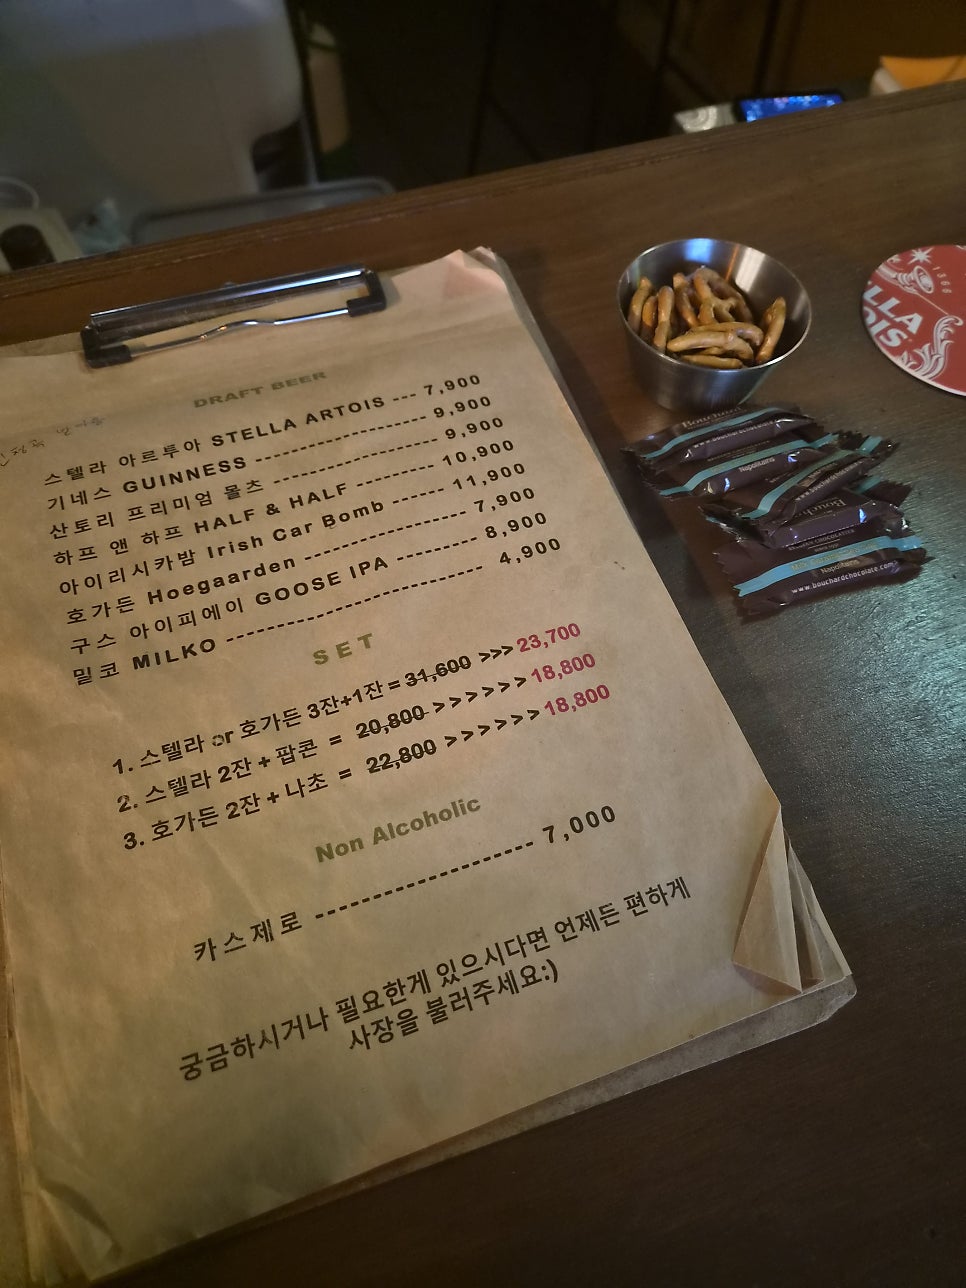 DRAFT BEER
스텔라 아르투아 STELLA ARTOIS --- 7,900
기네스 GUINNESS ----------------- 9,900
산토리 프리미엄 몰츠 --------------- 9,900
하프 앤 하프 HALF & HALF -------- 10,900
아이리시카밤 Irish Car Bomb ------ 11,900
호가든 Hoegaarden ---------------- 7,900
구스 아이피에이 GOOSE IPA --------- 8,900
밀코 MILKO -------------------------- 4,900
SET
1. 스텔라 or 호가든 3잔+1잔 = 31,600 >>> 23,700
2. 스텔라 2잔 + 팝콘 = 20,800 >>>>>> 18,800
3. 호가든 2잔 + 나초 = 22,800 >>>>>> 18,800
Non Alcoholic
카스제로 ------------------- 7,000
궁금하시거나 필요한게 있으시다면 언제든 편하게
사장을 불러주세요:)
1366
LLA
OIS
Bouchard
www.bouchardchocolate.com
Napolitains
Napolitains
www.bouchardchocolate.com